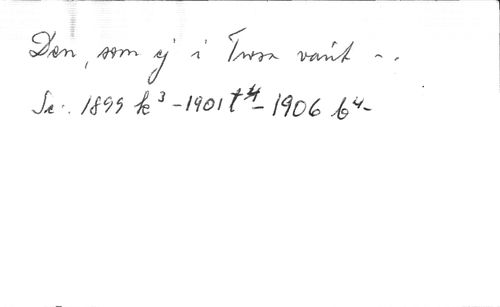 Den, som ej i Trosa varit - .
Se: 1899 k³ - 1901 t⁴ - 1906 b⁴ -